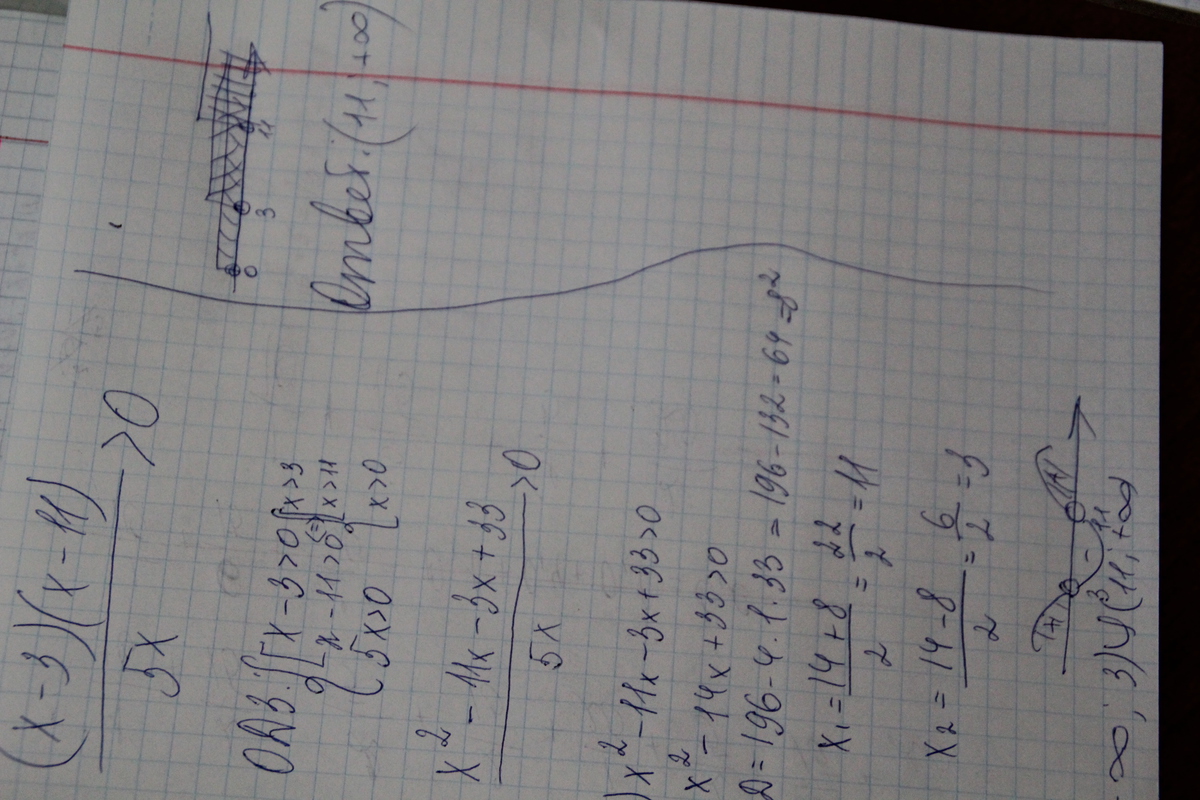 (x-3)(x-11)
5x
>0
ОДЗ: { [ x-3>0
x-11>0
5x>0
<=> { [ x>3
x>11
x>0
x² - 11x - 3x + 33
5x
>0
) x² - 11x - 3x + 33 > 0
x² - 14x + 33 > 0
D = 196 - 4 · 1 · 33 = 196 - 132 = 64 = 8²
x₁ = (14 + 8)/2 = 22/2 = 11
x₂ = (14 - 8)/2 = 6/2 = 3
(+) - (+)
3 11
-∞; 3) ∪ (11; +∞
0 3 11
Ответ: (11; +∞)